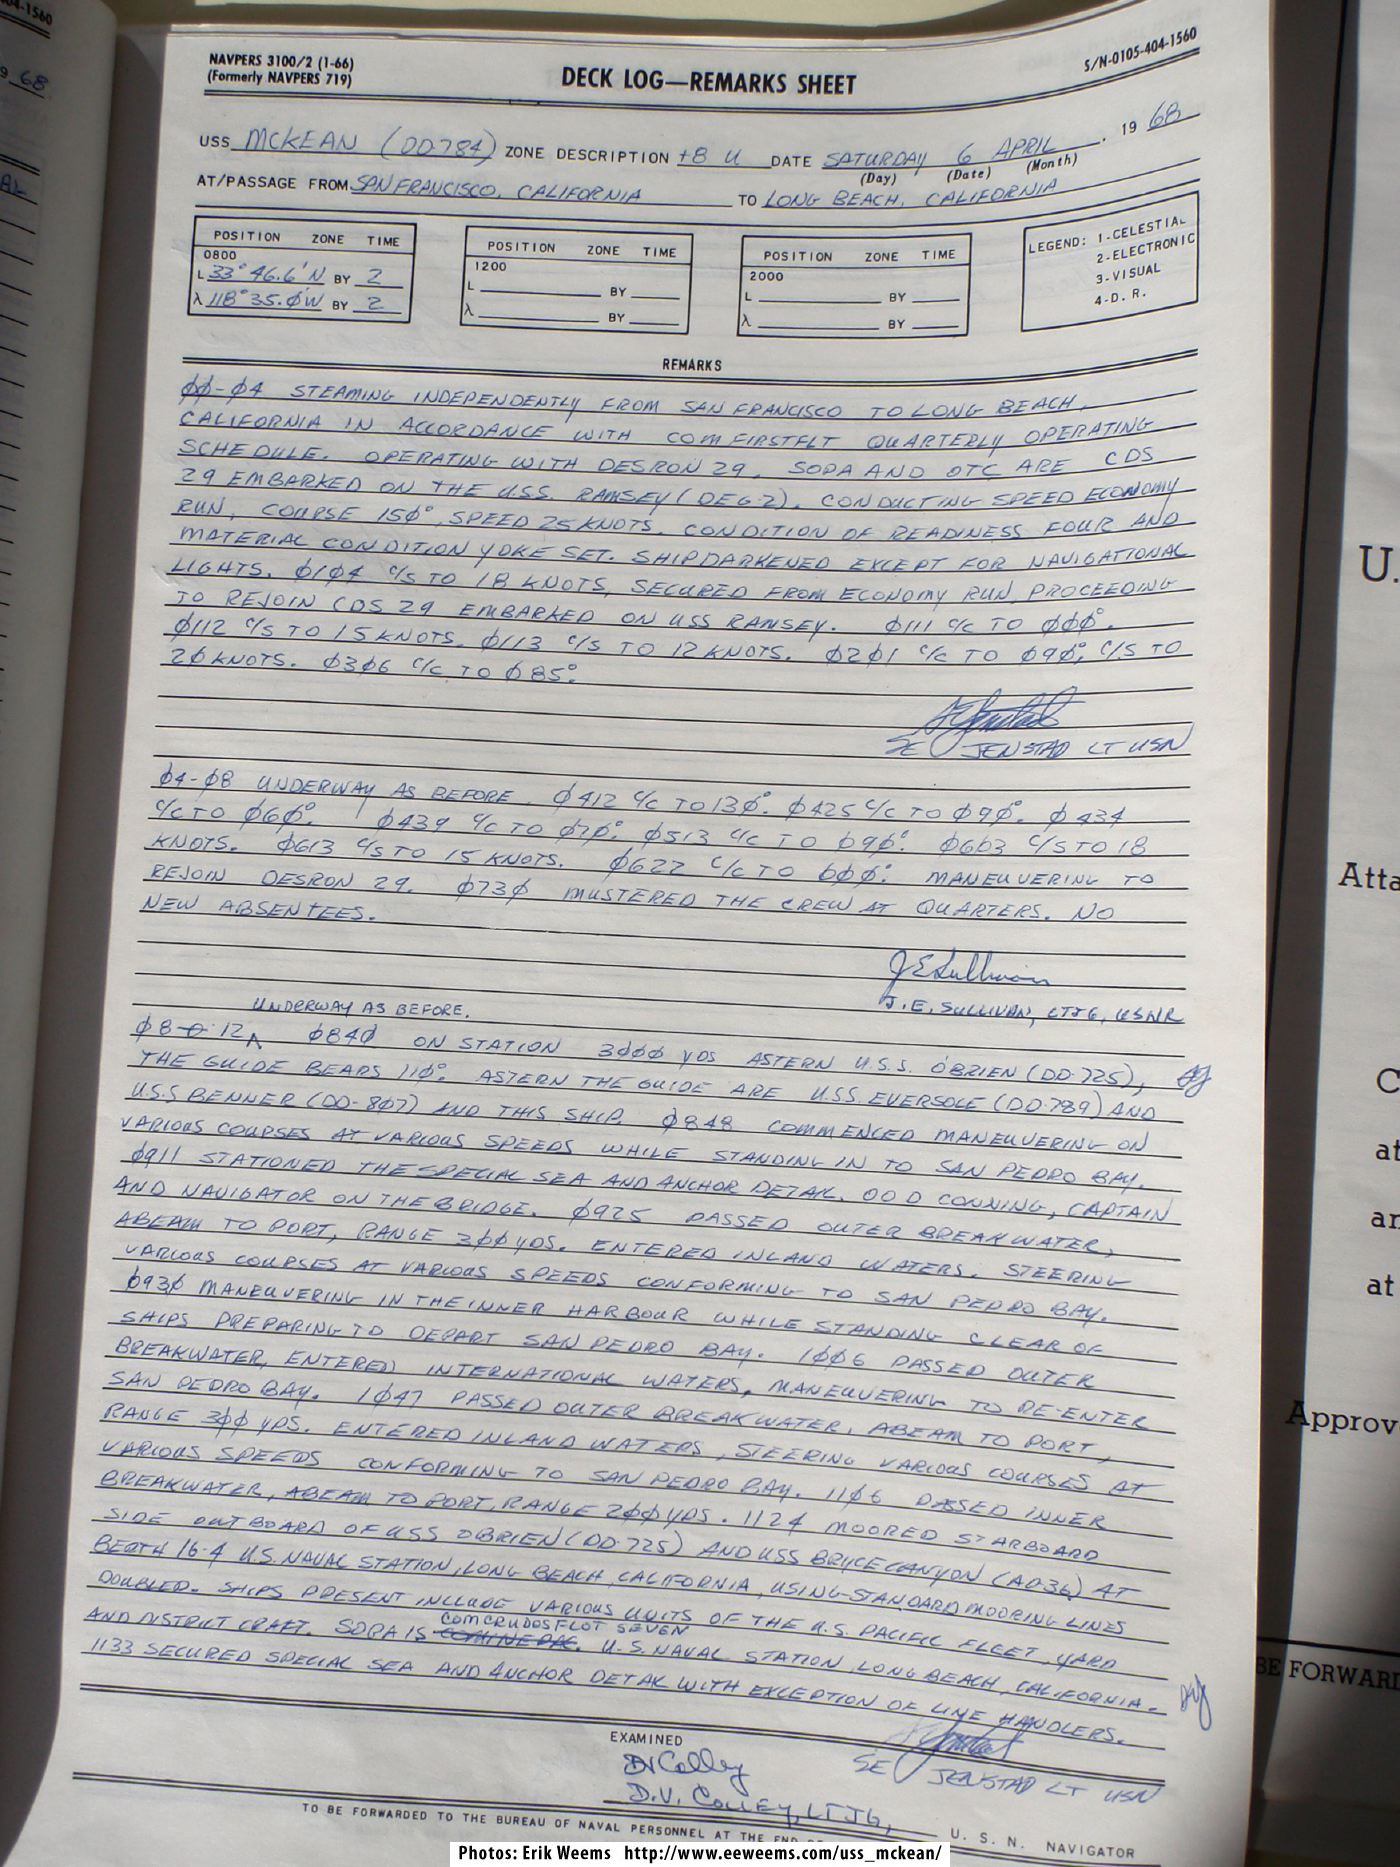 04-1560
9 68
NAVPERS 3100/2 (1-66)
(Formerly NAVPERS 719)
DECK LOG—REMARKS SHEET
S/N-0105-404-1560
USS MCKEAN (DD784) ZONE DESCRIPTION +8 U DATE SATURDAY 6 APRIL . 19 68
(Day) (Date) (Month)
AT/PASSAGE FROM SAN FRANCISCO, CALIFORNIA TO LONG BEACH, CALIFORNIA
POSITION ZONE TIME
0800
L 33° 46.6'N BY 2
λ 118° 35.0'W BY 2
POSITION ZONE TIME
1200
L BY
λ BY
POSITION ZONE TIME
2000
L BY
λ BY
LEGEND: 1-CELESTIAL
2-ELECTRONIC
3-VISUAL
4-D. R.
REMARKS
00-04 STEAMING INDEPENDENTLY FROM SAN FRANCISCO TO LONG BEACH,
CALIFORNIA IN ACCORDANCE WITH COMFIRSTFLT QUARTERLY OPERATING
SCHEDULE. OPERATING WITH DESRON 29. SOPA AND OTC ARE CDS
29 EMBARKED ON THE U.S.S. RAMSEY (DEG-2). CONDUCTING SPEED ECONOMY
RUN, COURSE 150°, SPEED 25 KNOTS. CONDITION OF READINESS FOUR AND
MATERIAL CONDITION YOKE SET. SHIP DARKENED EXCEPT FOR NAVIGATIONAL
LIGHTS. 0104 C/S TO 18 KNOTS, SECURED FROM ECONOMY RUN, PROCEEDING
TO REJOIN CDS 29 EMBARKED ON USS RAMSEY. 0111 C/C TO 000°.
0112 C/S TO 15 KNOTS. 0113 C/S TO 12 KNOTS. 0201 C/C TO 090°, C/S TO
20 KNOTS. 0306 C/C TO 085°.
SE JENSTAD LT USN
04-08 UNDERWAY AS BEFORE. 0412 C/C TO 130°. 0425 C/C TO 090°. 0434
C/C TO 060°. 0439 C/C TO 070°. 0513 C/C TO 090°. 0603 C/S TO 18
KNOTS. 0613 C/S TO 15 KNOTS. 0622 C/C TO 000°. MANEUVERING TO
REJOIN DESRON 29. 0730 MUSTERED THE CREW AT QUARTERS. NO
NEW ABSENTEES.
J E Sullivan
J. E. SULLIVAN, LTJG, USNR
UNDERWAY AS BEFORE.
08-12 0840 ON STATION 3000 YDS ASTERN U.S.S. O'BRIEN (DD-725),
THE GUIDE BEARS 110°. ASTERN THE GUIDE ARE U.S.S. EVERSOLE (DD-789) AND
U.S.S BENNER (DD-807) AND THIS SHIP. 0848 COMMENCED MANEUVERING ON
VARIOUS COURSES AT VARIOUS SPEEDS WHILE STANDING IN TO SAN PEDRO BAY.
0911 STATIONED THE SPECIAL SEA AND ANCHOR DETAIL. OOD CONNING, CAPTAIN
AND NAVIGATOR ON THE BRIDGE. 0925 PASSED OUTER BREAKWATER,
ABEAM TO PORT, RANGE 300 YDS. ENTERED INLAND WATERS. STEERING
VARIOUS COURSES AT VARIOUS SPEEDS CONFORMING TO SAN PEDRO BAY.
0930 MANEUVERING IN THE INNER HARBOUR WHILE STANDING CLEAR OF
SHIPS PREPARING TO DEPART SAN PEDRO BAY. 1006 PASSED OUTER
BREAKWATER, ENTERED INTERNATIONAL WATERS, MANEUVERING TO RE-ENTER
SAN PEDRO BAY. 1047 PASSED OUTER BREAKWATER, ABEAM TO PORT,
RANGE 300 YDS. ENTERED INLAND WATERS, STEERING VARIOUS COURSES AT
VARIOUS SPEEDS CONFORMING TO SAN PEDRO BAY. 1106 PASSED INNER
BREAKWATER, ABEAM TO PORT, RANGE 200 YDS. 1124 MOORED STARBOARD
SIDE OUTBOARD OF USS OBRIEN (DD-725) AND USS BRYCE CANYON (AD36) AT
BERTH 16-4 U.S. NAVAL STATION, LONG BEACH, CALIFORNIA, USING STANDARD MOORING LINES
DOUBLED. SHIPS PRESENT INCLUDE VARIOUS UNITS OF THE U.S. PACIFIC FLEET, YARD
COMCRUDOSFLOT SEVEN
AND DISTRICT CRAFT. SOPA IS U.S. NAVAL STATION, LONG BEACH, CALIFORNIA.
1133 SECURED SPECIAL SEA AND ANCHOR DETAIL WITH EXCEPTION OF LINE HANDLERS.
SE JENSTAD LT USN
EXAMINED
DV Colley
D.V. COLLEY, LTJG, U. S. N. NAVIGATOR
TO BE FORWARDED TO THE BUREAU OF NAVAL PERSONNEL AT THE END
U.
Atta
C
at
an
at
Approv
BE FORWARD
Photos: Erik Weems http://www.eeweems.com/uss_mckean/